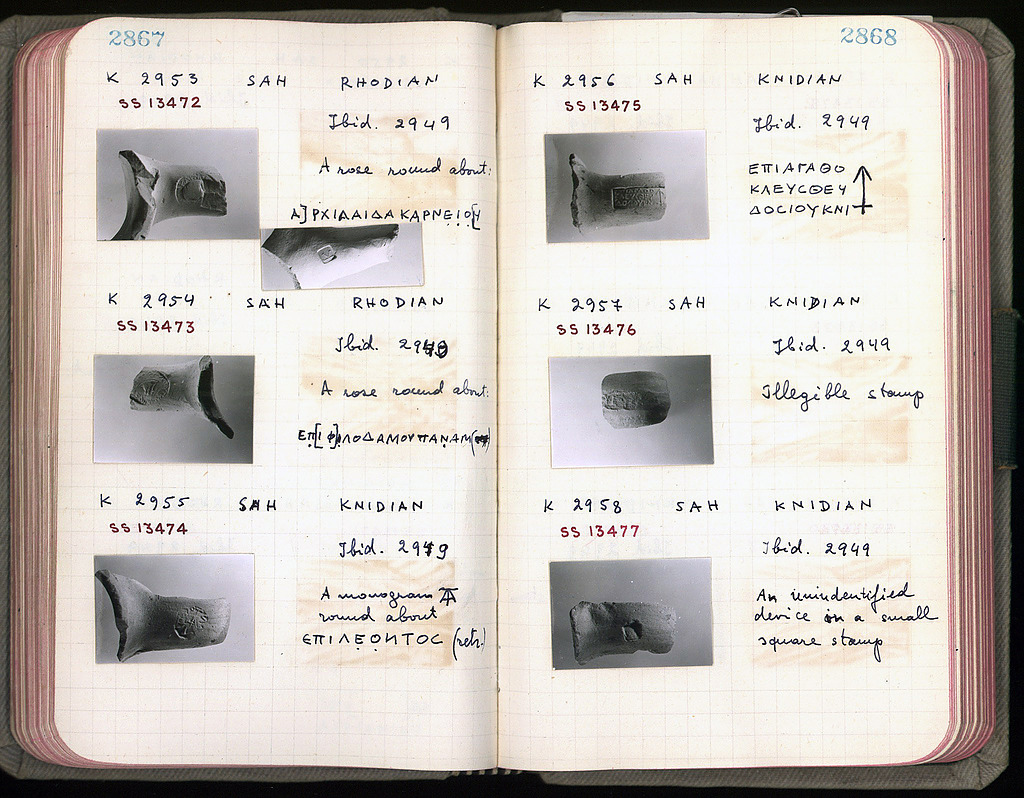 2867
K 2953 SAH RHODIAN
SS 13472
Ibid. 2949
A rose round about:
Α]ΡΧΙΔΑΙΔΑ ΚΑΡΝΕΙΟ[Υ
K 2954 SAH RHODIAN
SS 13473
Ibid. 2949
A rose round about:
ΕΠ[ΙΦ]ΙΛΟΔΑΜΟΥΠΑΝΑΜ
K 2955 SAH KNIDIAN
SS 13474
Ibid. 2949
A monogram
round about
ΕΠΙΛΕΟΝΤΟC (retr.)
2868
K 2956 SAH KNIDIAN
SS 13475
Ibid. 2949
ΕΠΙΑΓΑΘΟ
ΚΛΕΥCΘΕΥ
ΔΟCΙΟΥΚΝΙ
K 2957 SAH KNIDIAN
SS 13476
Ibid. 2949
Illegible stamp
K 2958 SAH KNIDIAN
SS 13477
Ibid. 2949
An unindentified
device in a small
square stamp